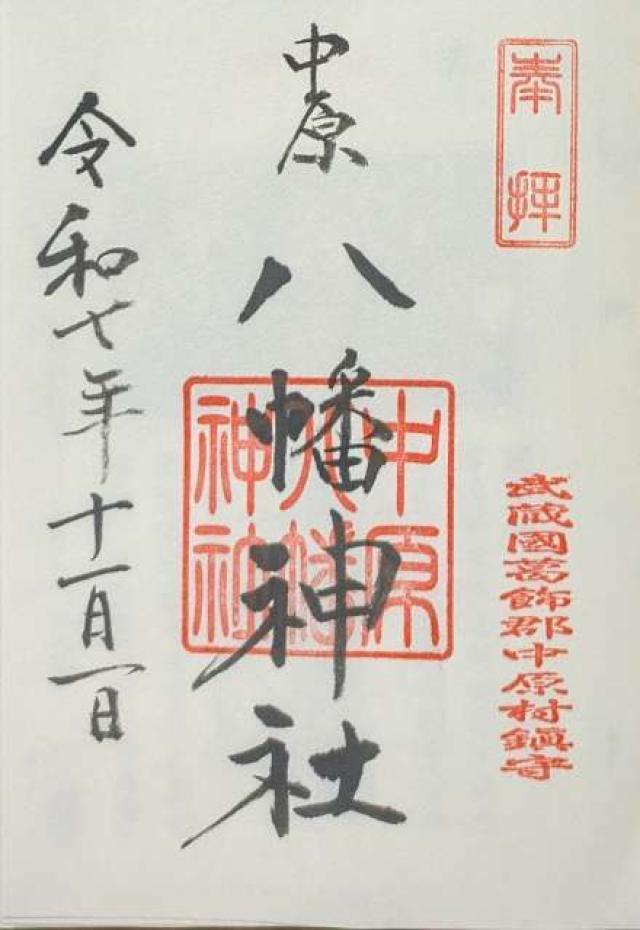 奉拝
武蔵國葛飾郡中原村鎮守
中原
八幡神社
中原
八幡
神社
令和七年十一月一日